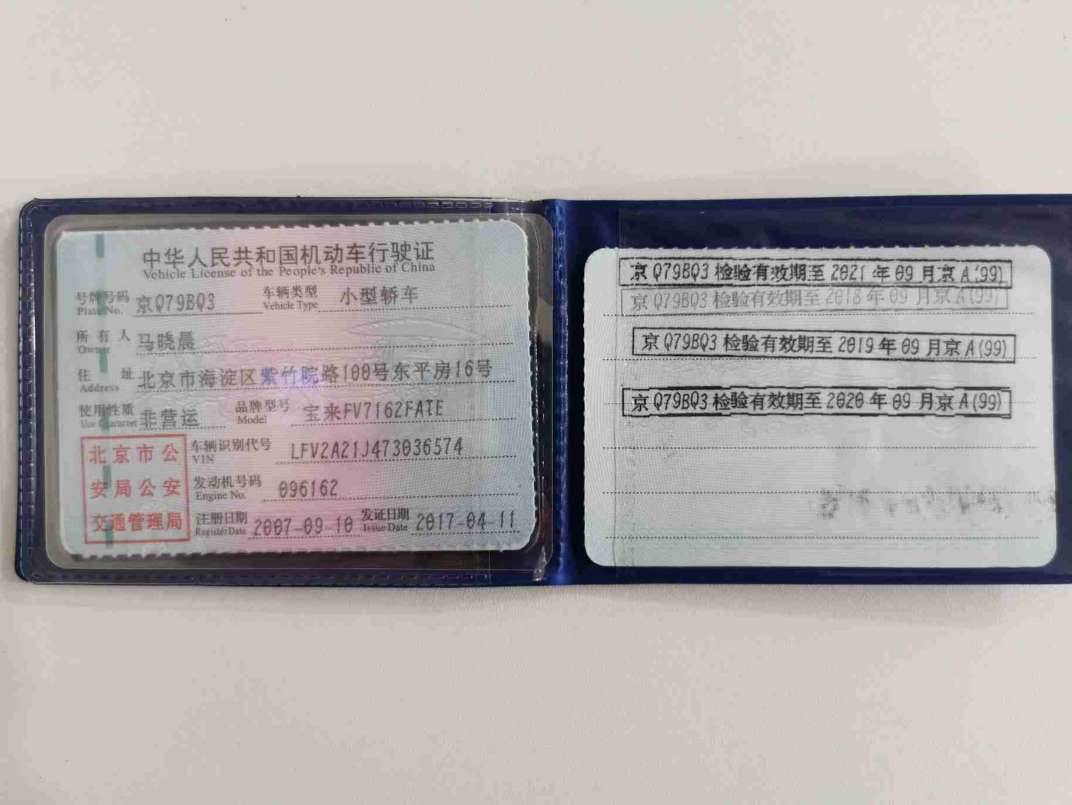 中华人民共和国机动车行驶证
Vehicle License of the People's Republic of China
号牌号码 京Q79BQ3 车辆类型 小型轿车
Plate No. Vehicle Type
所有人 马晓晨
Owner
住址 北京市海淀区紫竹院路100号东平房16号
Address
使用性质 非营运 品牌型号 宝来FV7162FATE
Use Character Model
北京市公
安局公安
交通管理局
车辆识别代号 LFV2A21J473036574
VIN
发动机号码 096162
Engine No.
注册日期 2007-09-10 发证日期 2017-04-11
Register Date Issue Date
京Q79BQ3 检验有效期至 2021 年 09 月京 A (99)
京Q79BQ3 检验有效期至 2018 年 09 月京 A (99)
京Q79BQ3 检验有效期至 2019 年 09 月京 A (99)
京Q79BQ3 检验有效期至 2020 年 09 月京 A (99)